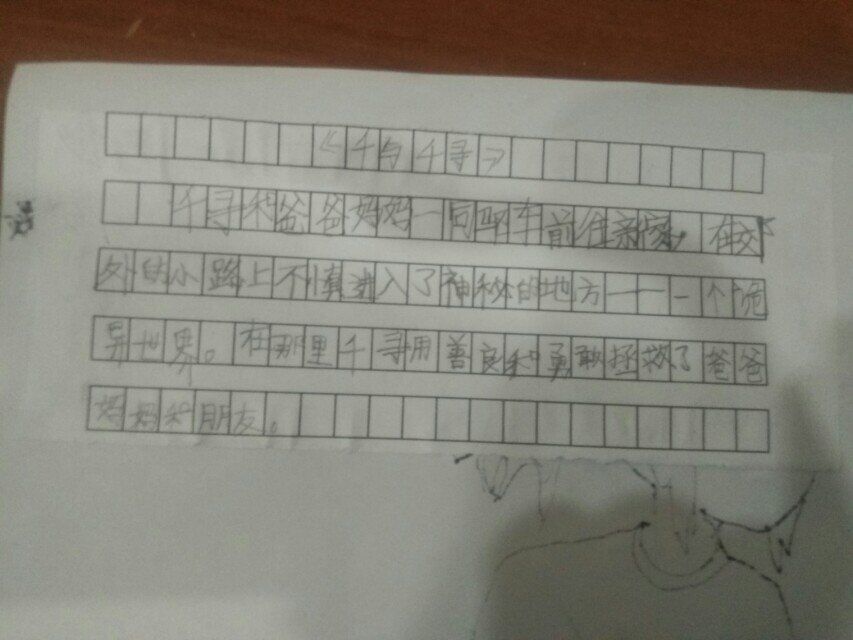 《千与千寻》
千寻和爸爸妈妈一同驱车前往新家，在郊
外的小路上不慎进入了神秘的地方——一个诡
异世界。在那里千寻用善良和勇敢拯救了爸爸
妈妈和朋友。